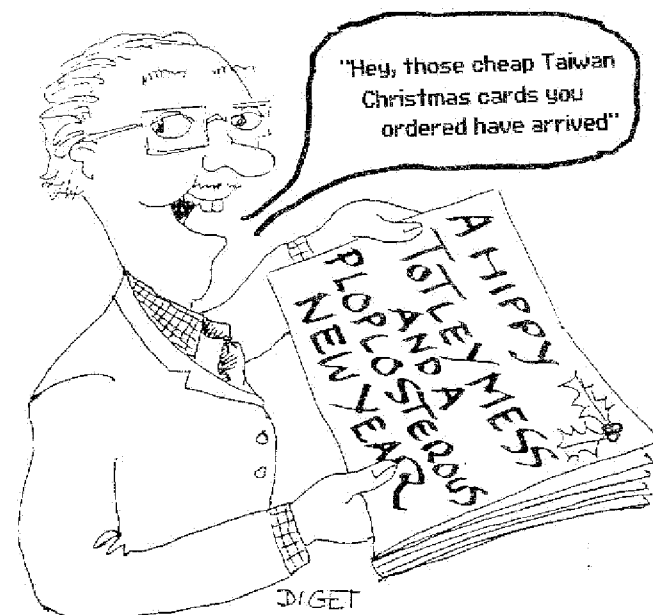 "Hey, those cheap Taiwan
Christmas cards you
ordered have arrived"
A HIPPY
TOTLEY MESS
AND A
PLOPLOSTEROUS
NEW YEAR
DIGET